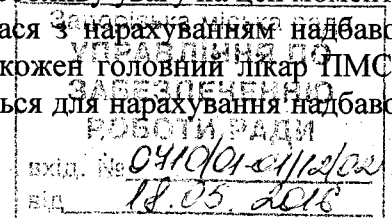 увагу на цей момент
ася з нарахуванням надбаво
кожен головний лікар ПМС
ься для нарахування надбаво
Запорізька міська рада
УПРАВЛІННЯ ПО
ЗАБЕЗПЕЧЕННЮ
РОБОТИ РАДИ
вхід. № 0410/01-01/12/02
від 18.05.2016